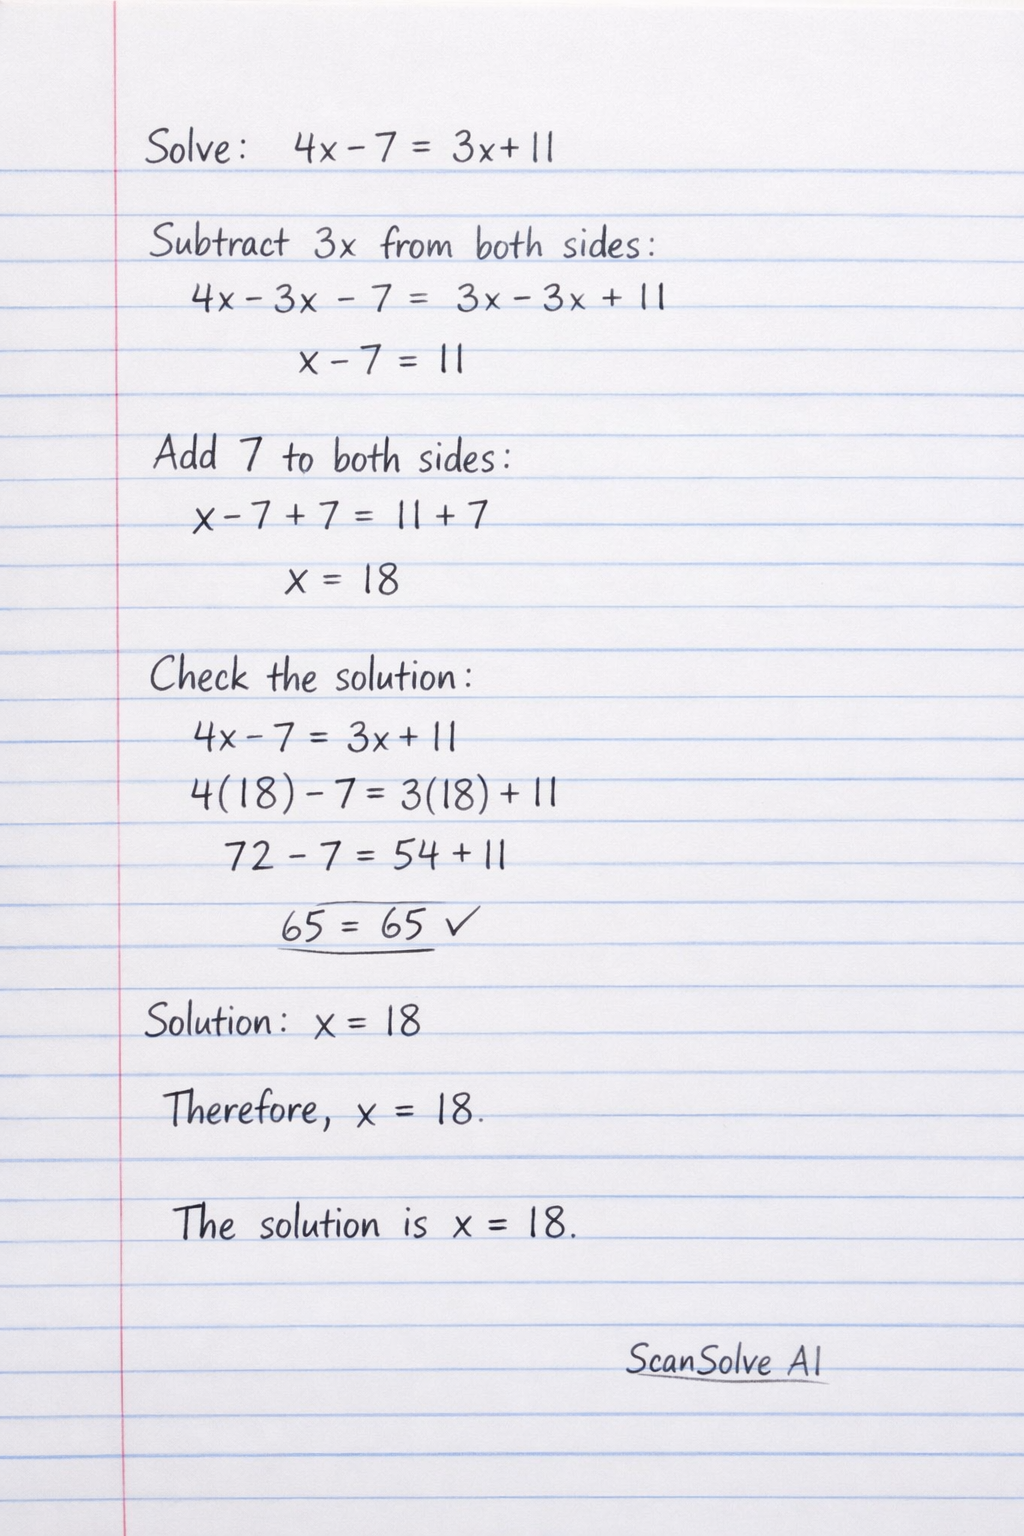 Solve: 4x - 7 = 3x + 11
Subtract 3x from both sides:
4x - 3x - 7 = 3x - 3x + 11
x - 7 = 11
Add 7 to both sides:
x - 7 + 7 = 11 + 7
x = 18
Check the solution:
4x - 7 = 3x + 11
4(18) - 7 = 3(18) + 11
72 - 7 = 54 + 11
65 = 65 ✓
Solution: x = 18
Therefore, x = 18.
The solution is x = 18.
ScanSolve AI